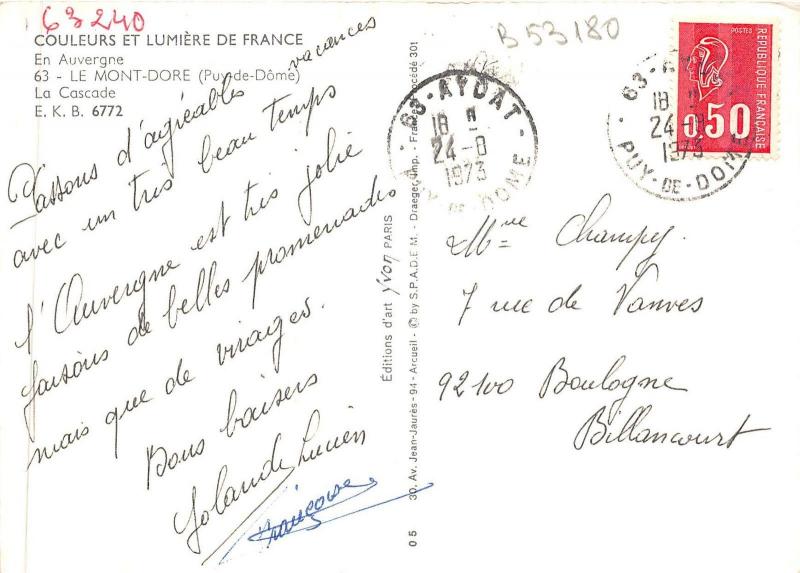 63240
COULEURS ET LUMIÈRE DE FRANCE
En Auvergne
63 - LE MONT-DORE (Puy-de-Dôme)
La Cascade
E. K. B. 6772
Passons d'agréables vacances
avec un très beau temps
l'Auvergne est très jolie
faisons de belles promenades
mais que de virages.
Bons baisers
Yolande Lucien
Françoise
Éditions d'art yvon PARIS
30, Av. Jean-Jaurès - 94 - Arcueil - © by S.P.A.D.E.M. - Draeger, Imp. - France Procédé 301
05
B53180
63-AYDAT
18 H
24-8
1973
PUY-DE-DOME
POSTES
RÉPUBLIQUE FRANÇAISE
0,50
63-AY
18 H
24-8
1973
PUY-DE-DOME
Mme Champy.
7 rue de Vanves
92100 Boulogne
Billancourt